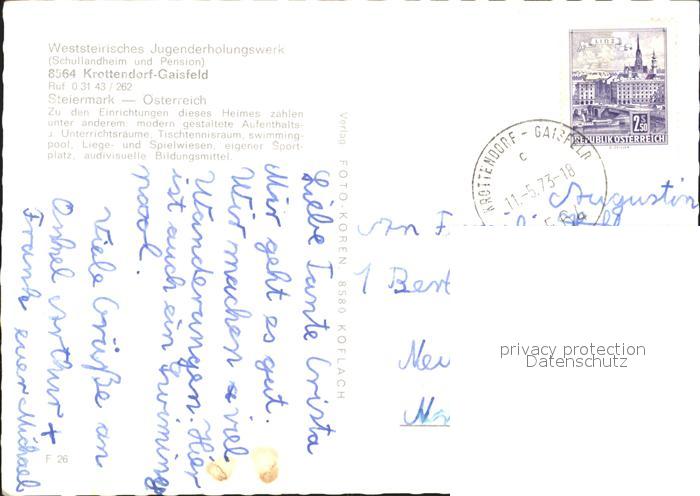 Weststeirisches Jugenderholungswerk
(Schullandheim und Pension)
8564 Krottendorf-Gaisfeld
Ruf 0 31 43 / 262
Steiermark — Österreich
Zu den Einrichtungen dieses Heimes zahlen
unter anderem modern gestaltete Aufenthalts-
u. Unterrichtsräume, Tischtennisraum, swimming-
pool, Liege- und Spielwiesen, eigener Sport-
platz, audivisuelle Bildungsmittel.
Liebe Tante Crista
Mir geht es gut.
Wir machen viel
Wanderungen. Hier
ist auch ein Swiming
pool.
Viele Grüße an
Onkel Arthur +
Frank euer Michael
Verlag FOTO-KOREN, 8580 KÖFLACH
F 26
LINZ
2.50 S
REPUBLIK ÖSTERREICH
KROTTENDORF - GAISFELD
c
-11.-5.73-18
Augustin
An F
1 Berl
Neu
privacy protection
Datenschutz